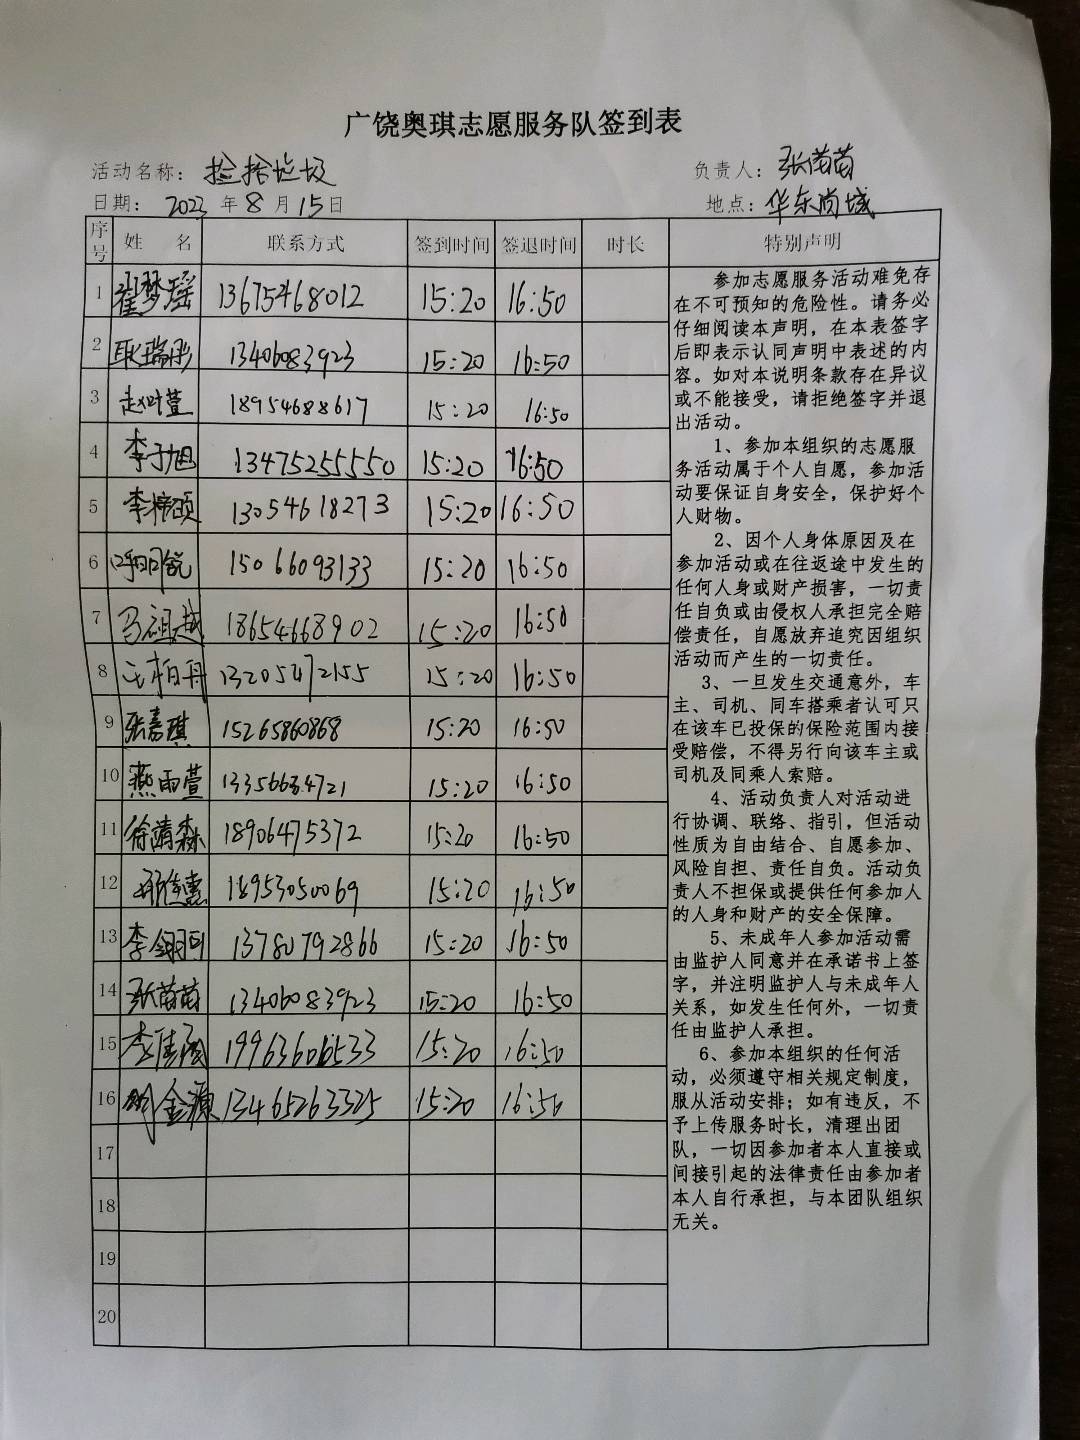 广饶奥琪志愿服务队签到表
活动名称： 捡拾垃圾 负责人： 张苗苗
日期： 2023 年 8 月 15 日 地点： 华东尚城
序号 姓 名 联系方式 签到时间 签退时间 时长 特别声明
1 崔梦瑶 13675468012 15:20 16:50
2 耿瑞彤 13406083923 15:20 16:50
3 赵叶萱 18954688617 15:20 16:50
4 李子旭 13475255550 15:20 16:50
5 李梓硕 13054618273 15:20 16:50
6 15066093133 15:20 16:50
7 马祖越 18654668902 15:20 16:50
8 王柏丹 13205472155 15:20 16:50
9 张嘉琪 15265860868 15:20 16:50
10 燕雨萱 13356634721 15:20 16:50
11 徐荫森 18906475372 15:20 16:50
12 18953050069 15:20 16:50
13 李翎珂 13780792866 15:20 16:50
14 张苗苗 13406083923 15:20 16:50
15 19963606533 15:20 16:50
16 13465263325 15:20 16:50
17
18
19
20
参加志愿服务活动难免存
在不可预知的危险性。请务必
仔细阅读本声明，在本表签字
后即表示认同声明中表述的内
容。如对本说明条款存在异议
或不能接受，请拒绝签字并退
出活动。
1、参加本组织的志愿服
务活动属于个人自愿，参加活
动要保证自身安全，保护好个
人财物。
2、因个人身体原因及在
参加活动或在往返途中发生的
任何人身或财产损害，一切责
任自负或由侵权人承担完全赔
偿责任，自愿放弃追究因组织
活动而产生的一切责任。
3、一旦发生交通意外，车
主、司机、同车搭乘者认可只
在该车已投保的保险范围内接
受赔偿，不得另行向该车主或
司机及同乘人索赔。
4、活动负责人对活动进
行协调、联络、指引，但活动
性质为自由结合、自愿参加、
风险自担、责任自负。活动负
责人不担保或提供任何参加人
的人身和财产的安全保障。
5、未成年人参加活动需
由监护人同意并在承诺书上签
字，并注明监护人与未成年人
关系，如发生任何外，一切责
任由监护人承担。
6、参加本组织的任何活
动，必须遵守相关规定制度，
服从活动安排；如有违反，不
予上传服务时长，清理出团
队，一切因参加者本人直接或
间接引起的法律责任由参加者
本人自行承担，与本团队组织
无关。